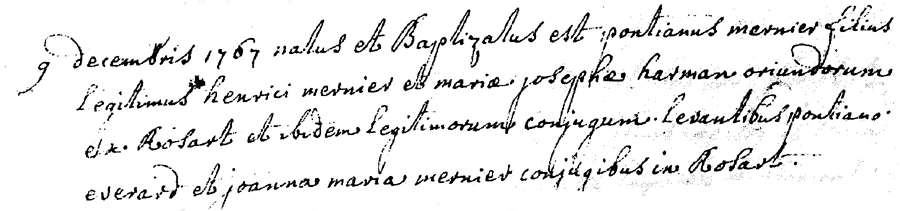 9 decembris 1767 natus et Baptizatus est pontianus mernier filius
legitimus henrici mernier et mariæ josephæ harman oriundorum
ex. Rosart et ibidem legitimorum conjugum. levantibus pontiano.
everard et joanna maria mernier conjugibus in Rosart.